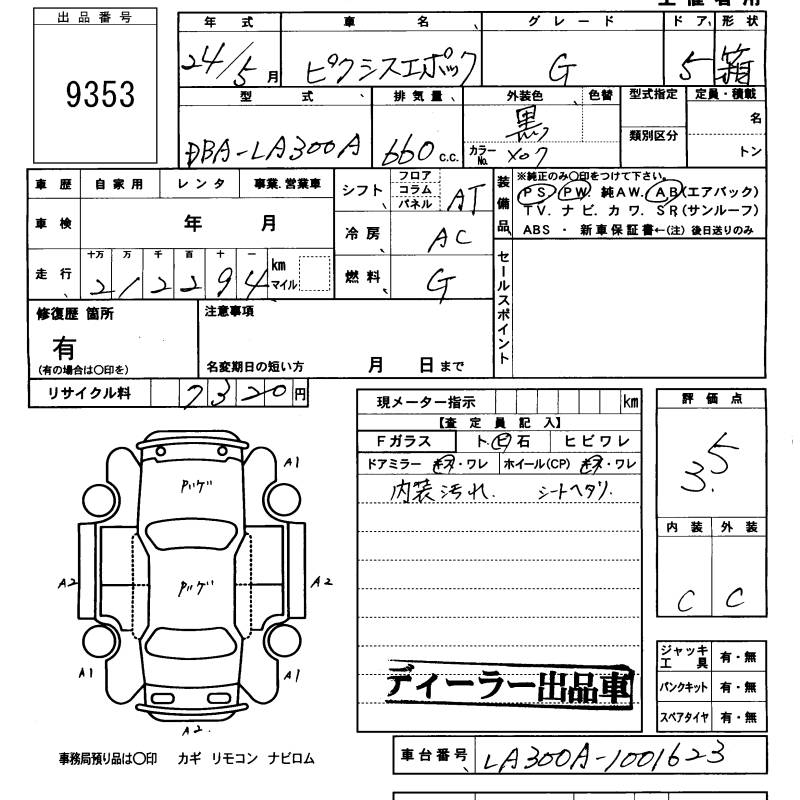 出品番号
9353
年式 車名 グレード ドア 形状
24/5月 ピクシスエポック G 5 箱
型式 排気量 外装色 色替 型式指定 定員・積載
DBA-LA300A 660 c.c. 黒 カラーNo. X07 類別区分 名 トン
車歴 自家用 レンタ 事業.営業車
車検 年 月
走行 十万 万 千 百 十 一 km マイル
212294
シフト フロア コラム パネル AT
冷房 AC
燃料 G
装備品
※純正のみ〇印をつけて下さい。
PS PW 純AW. AB(エアバック)
TV. ナビ. カワ. SR(サンルーフ)
ABS ・ 新車保証書←(注) 後日送りのみ
セールスポイント
修復歴 箇所
有
(有の場合は〇印を)
注意事項
名変期日の短い方 月 日まで
リサイクル料 7320円
現メーター指示 km
【査定員記入】
Fガラス ト ビ 石 ヒビワレ
ドアミラー キズ・ワレ ホイール(CP) キズ・ワレ
内装汚れ. シートヘタリ.
評価点
3.5
内装 外装
C C
A1
A2 A2
A1 A1
A2.
ディーラー出品車
ジャッキ工具 有・無
パンクキット 有・無
スペアタイヤ 有・無
事務局預り品は〇印 カギ リモコン ナビロム
車台番号 LA300A-1001623